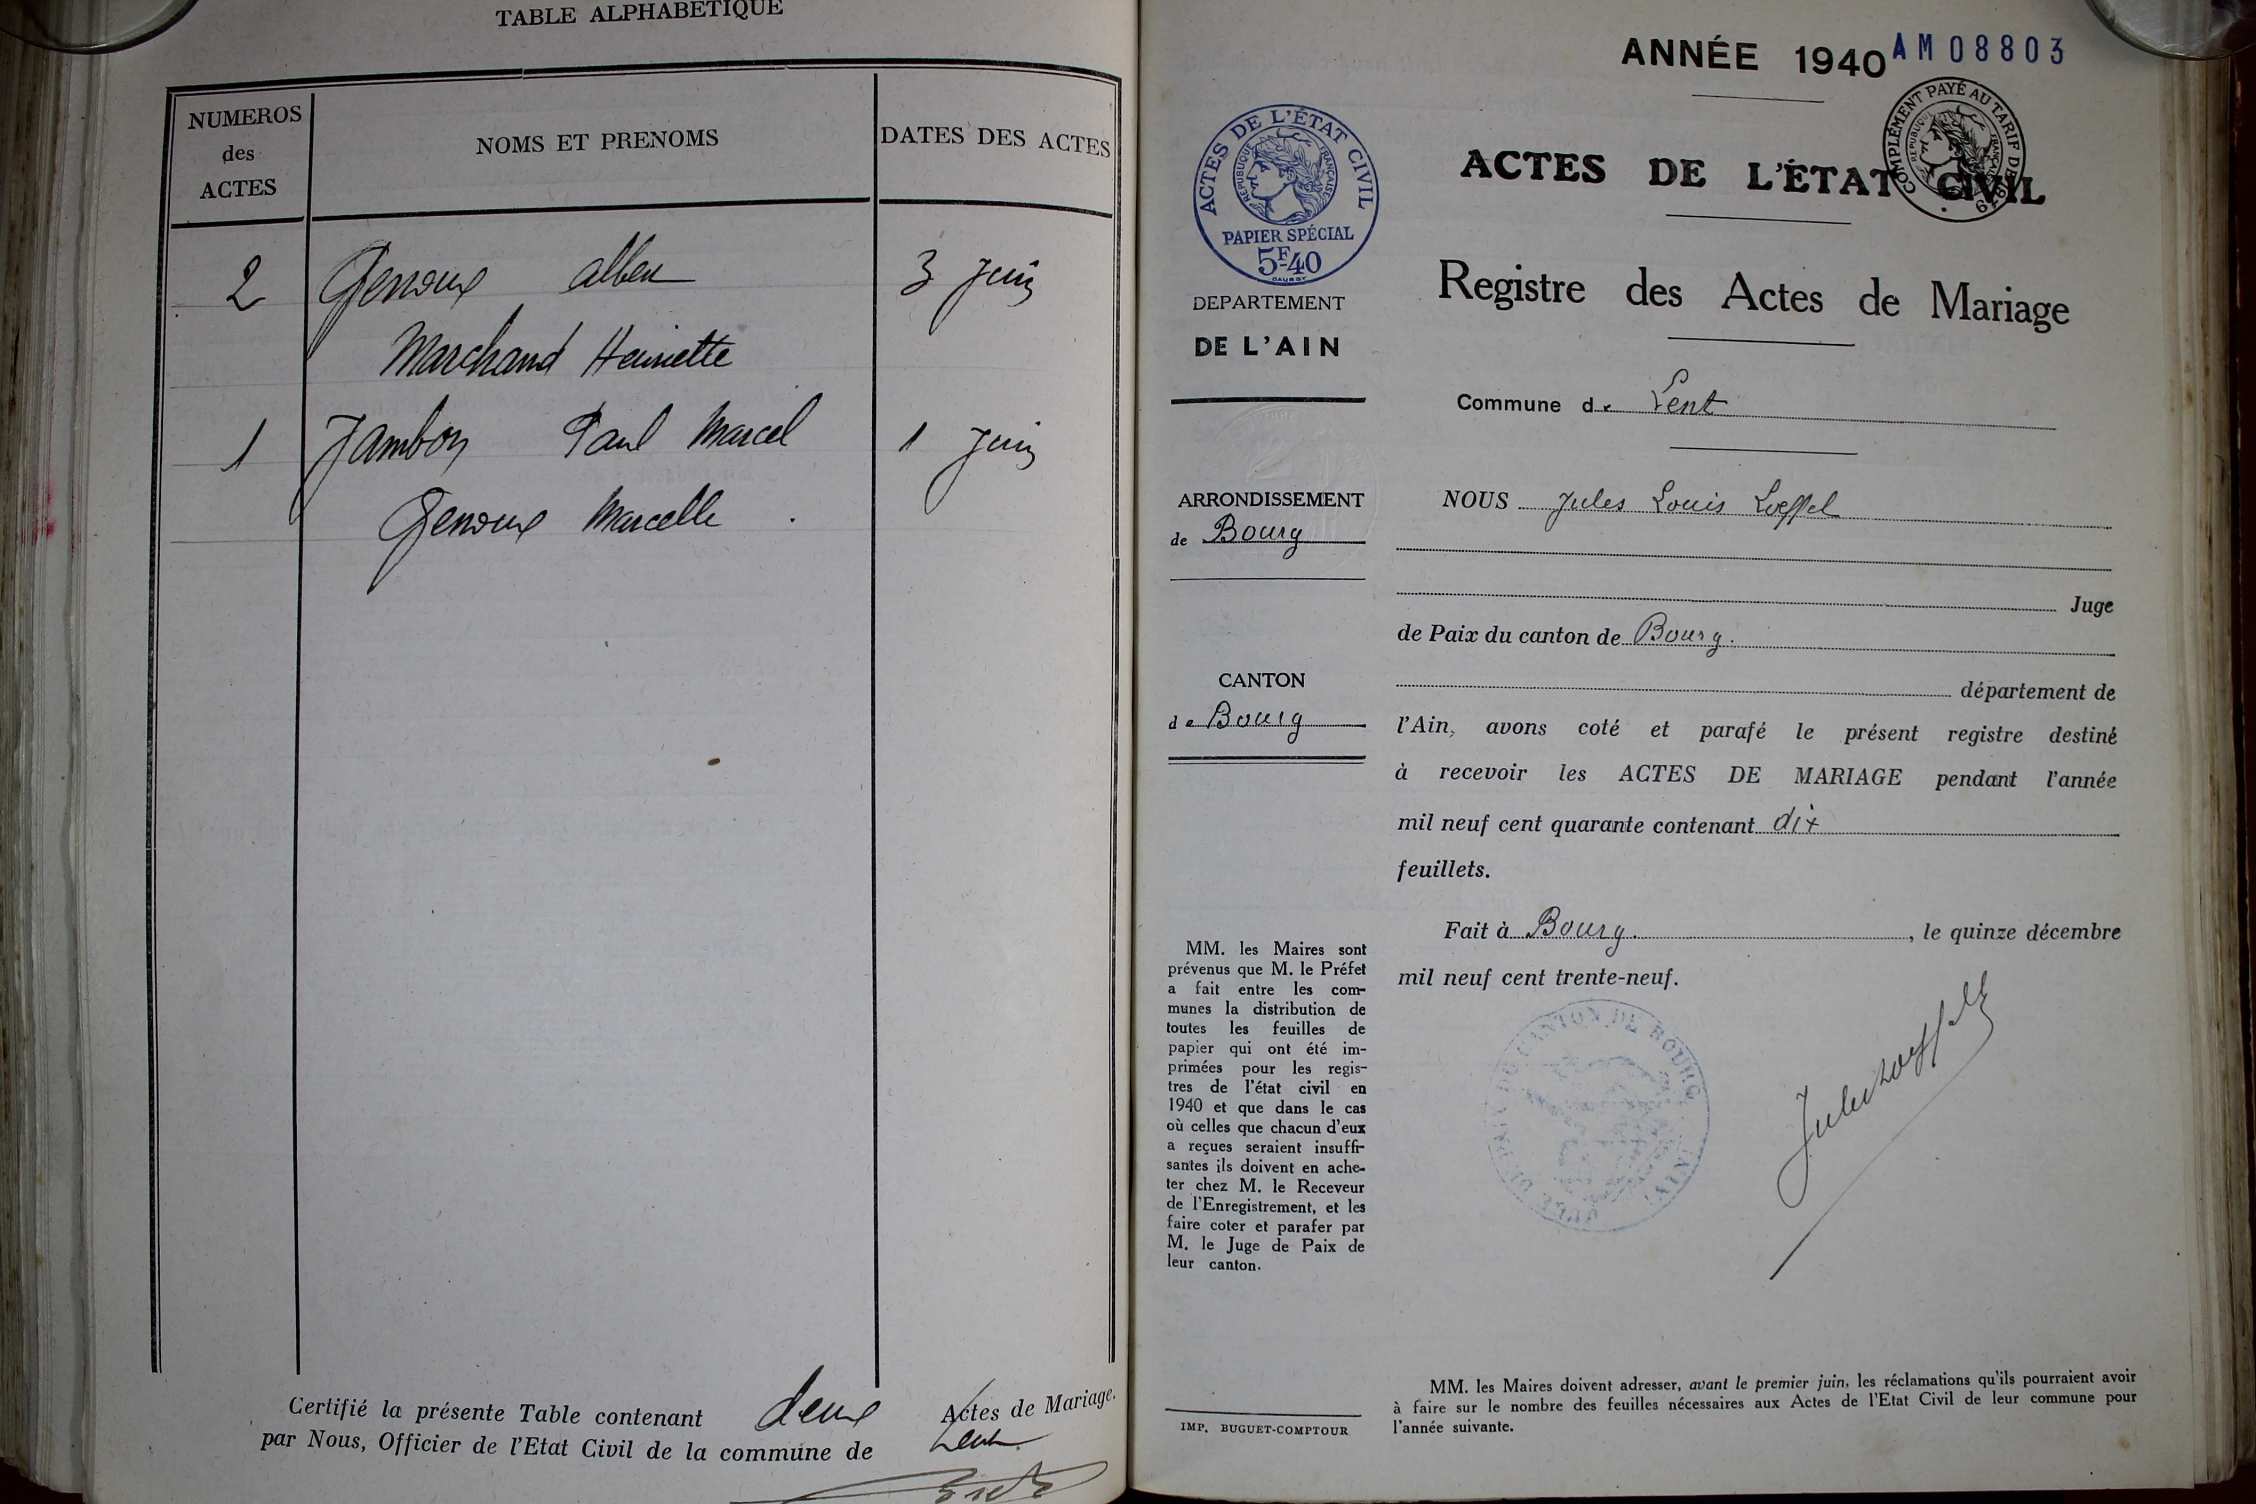 TABLE ALPHABETIQUE
NUMEROS
des
ACTES
NOMS ET PRENOMS
DATES DES ACTES
2 Genoux Albert 3 Juin
Marchand Henriette
1 Jambon Paul Marcel 1 Juin
Genoux Marcelle
Certifié la présente Table contenant deux Actes de Mariage.
par Nous, Officier de l'Etat Civil de la commune de Lent
ANNÉE 1940
AM08803
COMPLÉMENT PAYÉ AU TARIF DE 1939
RÉPUBLIQUE FRANÇAISE
ACTES DE L'ÉTAT CIVIL
RÉPUBLIQUE FRANÇAISE
PAPIER SPÉCIAL
5F40
ACTES DE L'ÉTAT CIVIL
Registre des Actes de Mariage
DEPARTEMENT
DE L'AIN
Commune de Lent
ARRONDISSEMENT
de Bourg
CANTON
de Bourg
NOUS Jules Louis Loeffel
Juge
de Paix du canton de Bourg.
département de
l'Ain, avons coté et parafé le présent registre destiné
à recevoir les ACTES DE MARIAGE pendant l'année
mil neuf cent quarante contenant dix
feuillets.
Fait à Bourg. , le quinze décembre
mil neuf cent trente-neuf.
JUGE DE PAIX DU CANTON DE BOURG (AIN)
Jules Loeffel
MM. les Maires sont
prévenus que M. le Préfet
a fait entre les com-
munes la distribution de
toutes les feuilles de
papier qui ont été im-
primées pour les regis-
tres de l'état civil en
1940 et que dans le cas
où celles que chacun d'eux
a reçues seraient insuffi-
santes ils doivent en ache-
ter chez M. le Receveur
de l'Enregistrement, et les
faire coter et parafer par
M. le Juge de Paix de
leur canton.
IMP. BUGUET-COMPTOUR
MM. les Maires doivent adresser, avant le premier juin, les réclamations qu'ils pourraient avoir
à faire sur le nombre des feuilles nécessaires aux Actes de l'Etat Civil de leur commune pour
l'année suivante.